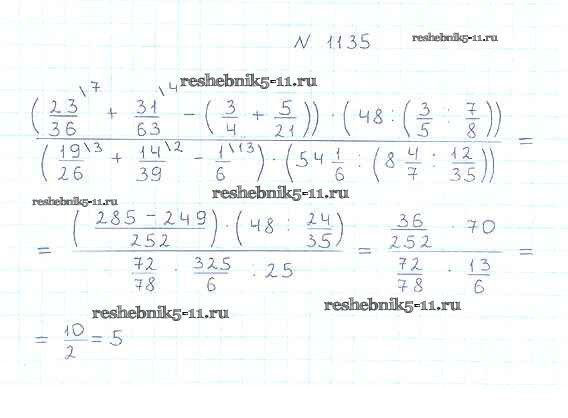 N 1135 reshebnik5-11.ru
reshebnik5-11.ru
(23/36 \7 + 31/63 \4 - (3/4 + 5/21)) · (48 : (3/5 : 7/8))
(19/26 \3 + 14/39 \2 - 1/6 \13) · (54 1/6 : (8 4/7 : 12/35)) =
reshebnik5-11.ru reshebnik5-11.ru
= (285 - 249/252) · (48 : 24/35) = 36/252 · 70 =
72/78 · 325/6 : 25 72/78 · 13/6
reshebnik5-11.ru reshebnik5-11.ru
= 10/2 = 5